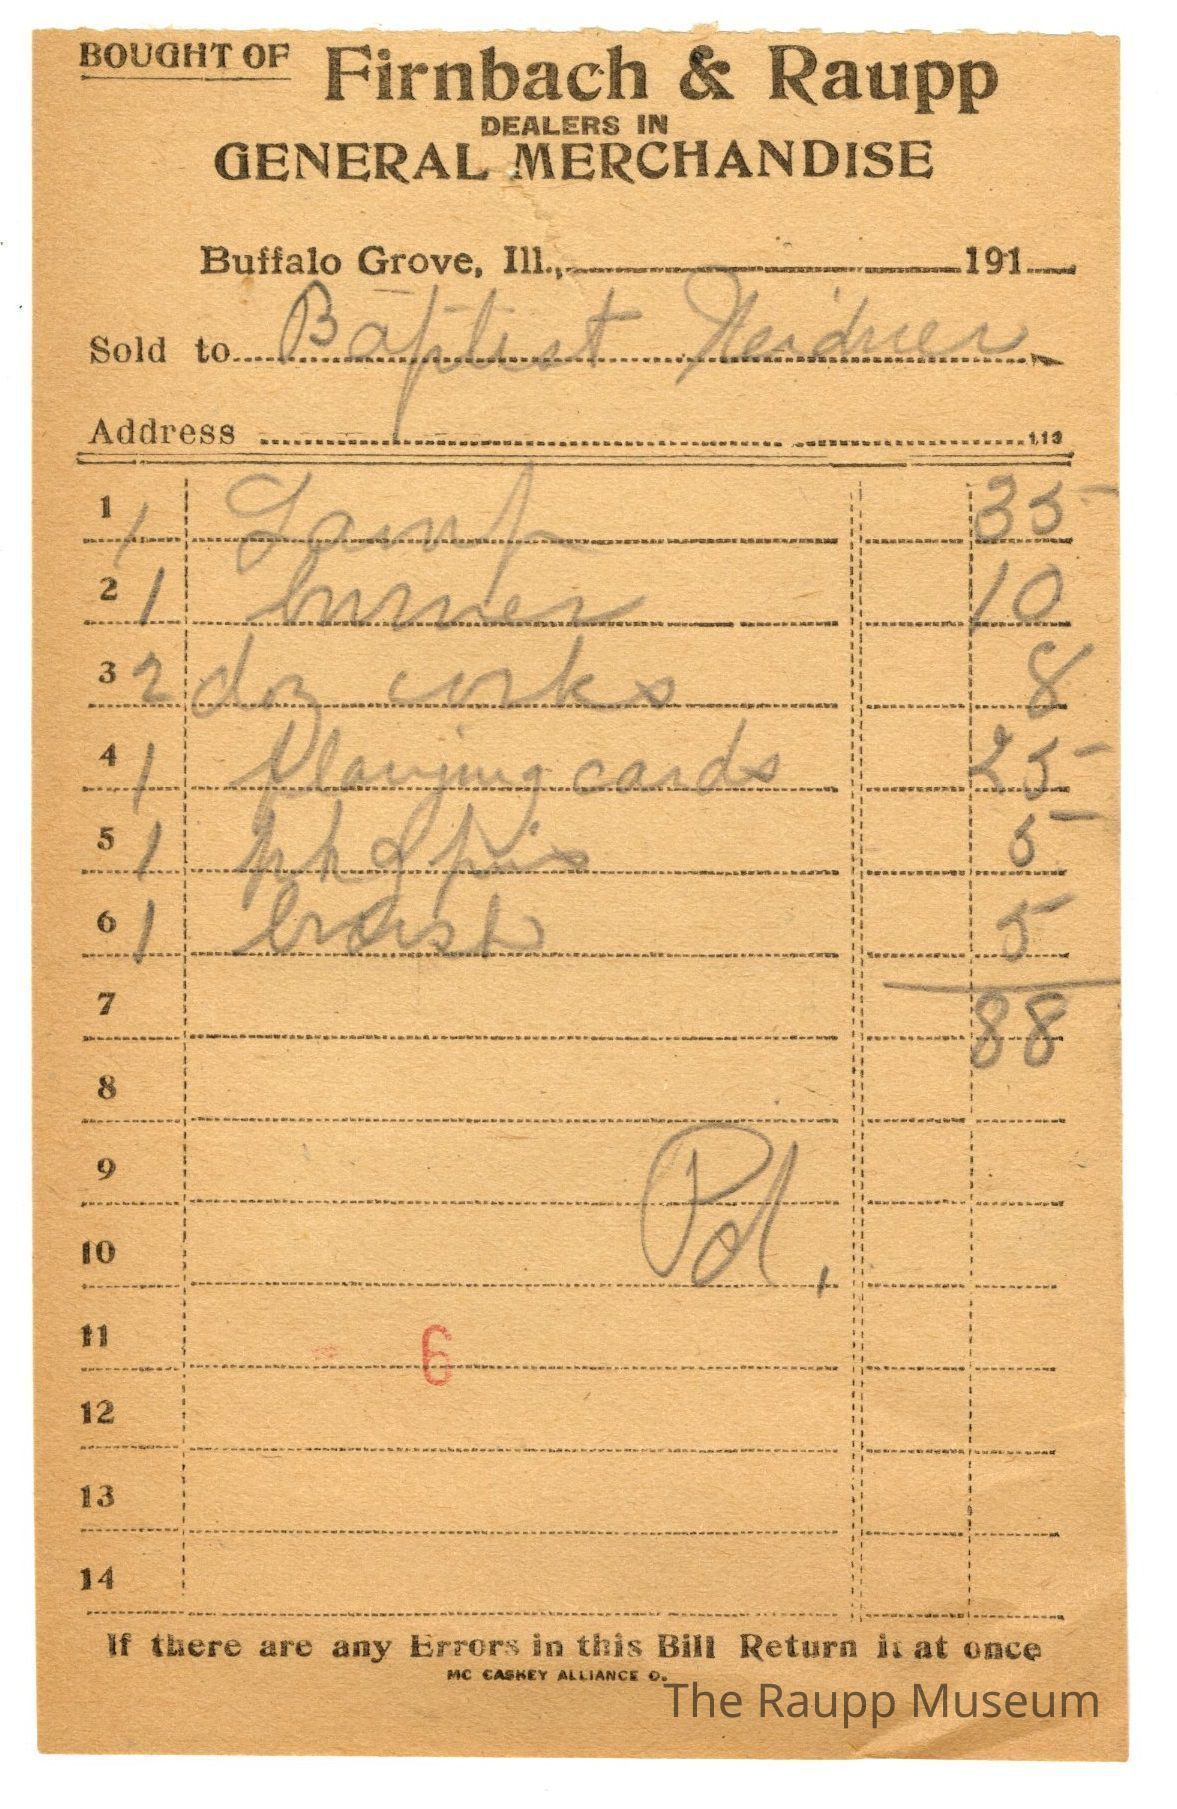 BOUGHT OF Firnbach & Raupp
DEALERS IN
GENERAL MERCHANDISE
Buffalo Grove, Ill., 191
Sold to Baptist Weidner
Address 113
1 1 Lamp 35
2 1 burner 10
3 2 doz corks 8
4 1 Playing cards 25
5 1 pkg pins 5
6 1 brush 5
7 88
8
9
Pd.
10
11 6
12
13
14
If there are any Errors in this Bill Return it at once
MC CASKEY ALLIANCE O.
The Raupp Museum